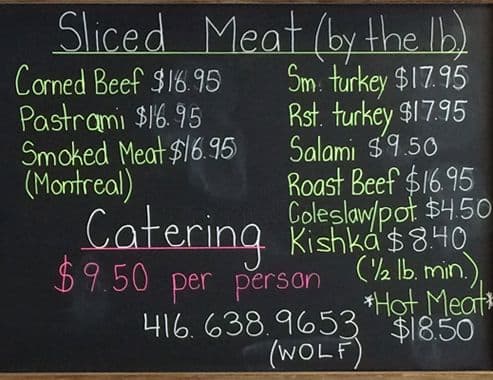 Sliced Meat (by the lb)
Corned Beef $16.95
Pastrami $16.95
Smoked Meat $16.95
(Montreal)
Sm. turkey $17.95
Rst. turkey $17.95
Salami $9.50
Roast Beef $16.95
Coleslaw/pot. $4.50
Kishka $8.40
(1/2 lb. min.)
*Hot Meat*
$18.50
Catering
$9.50 per person
416.638.9653
(WOLF)